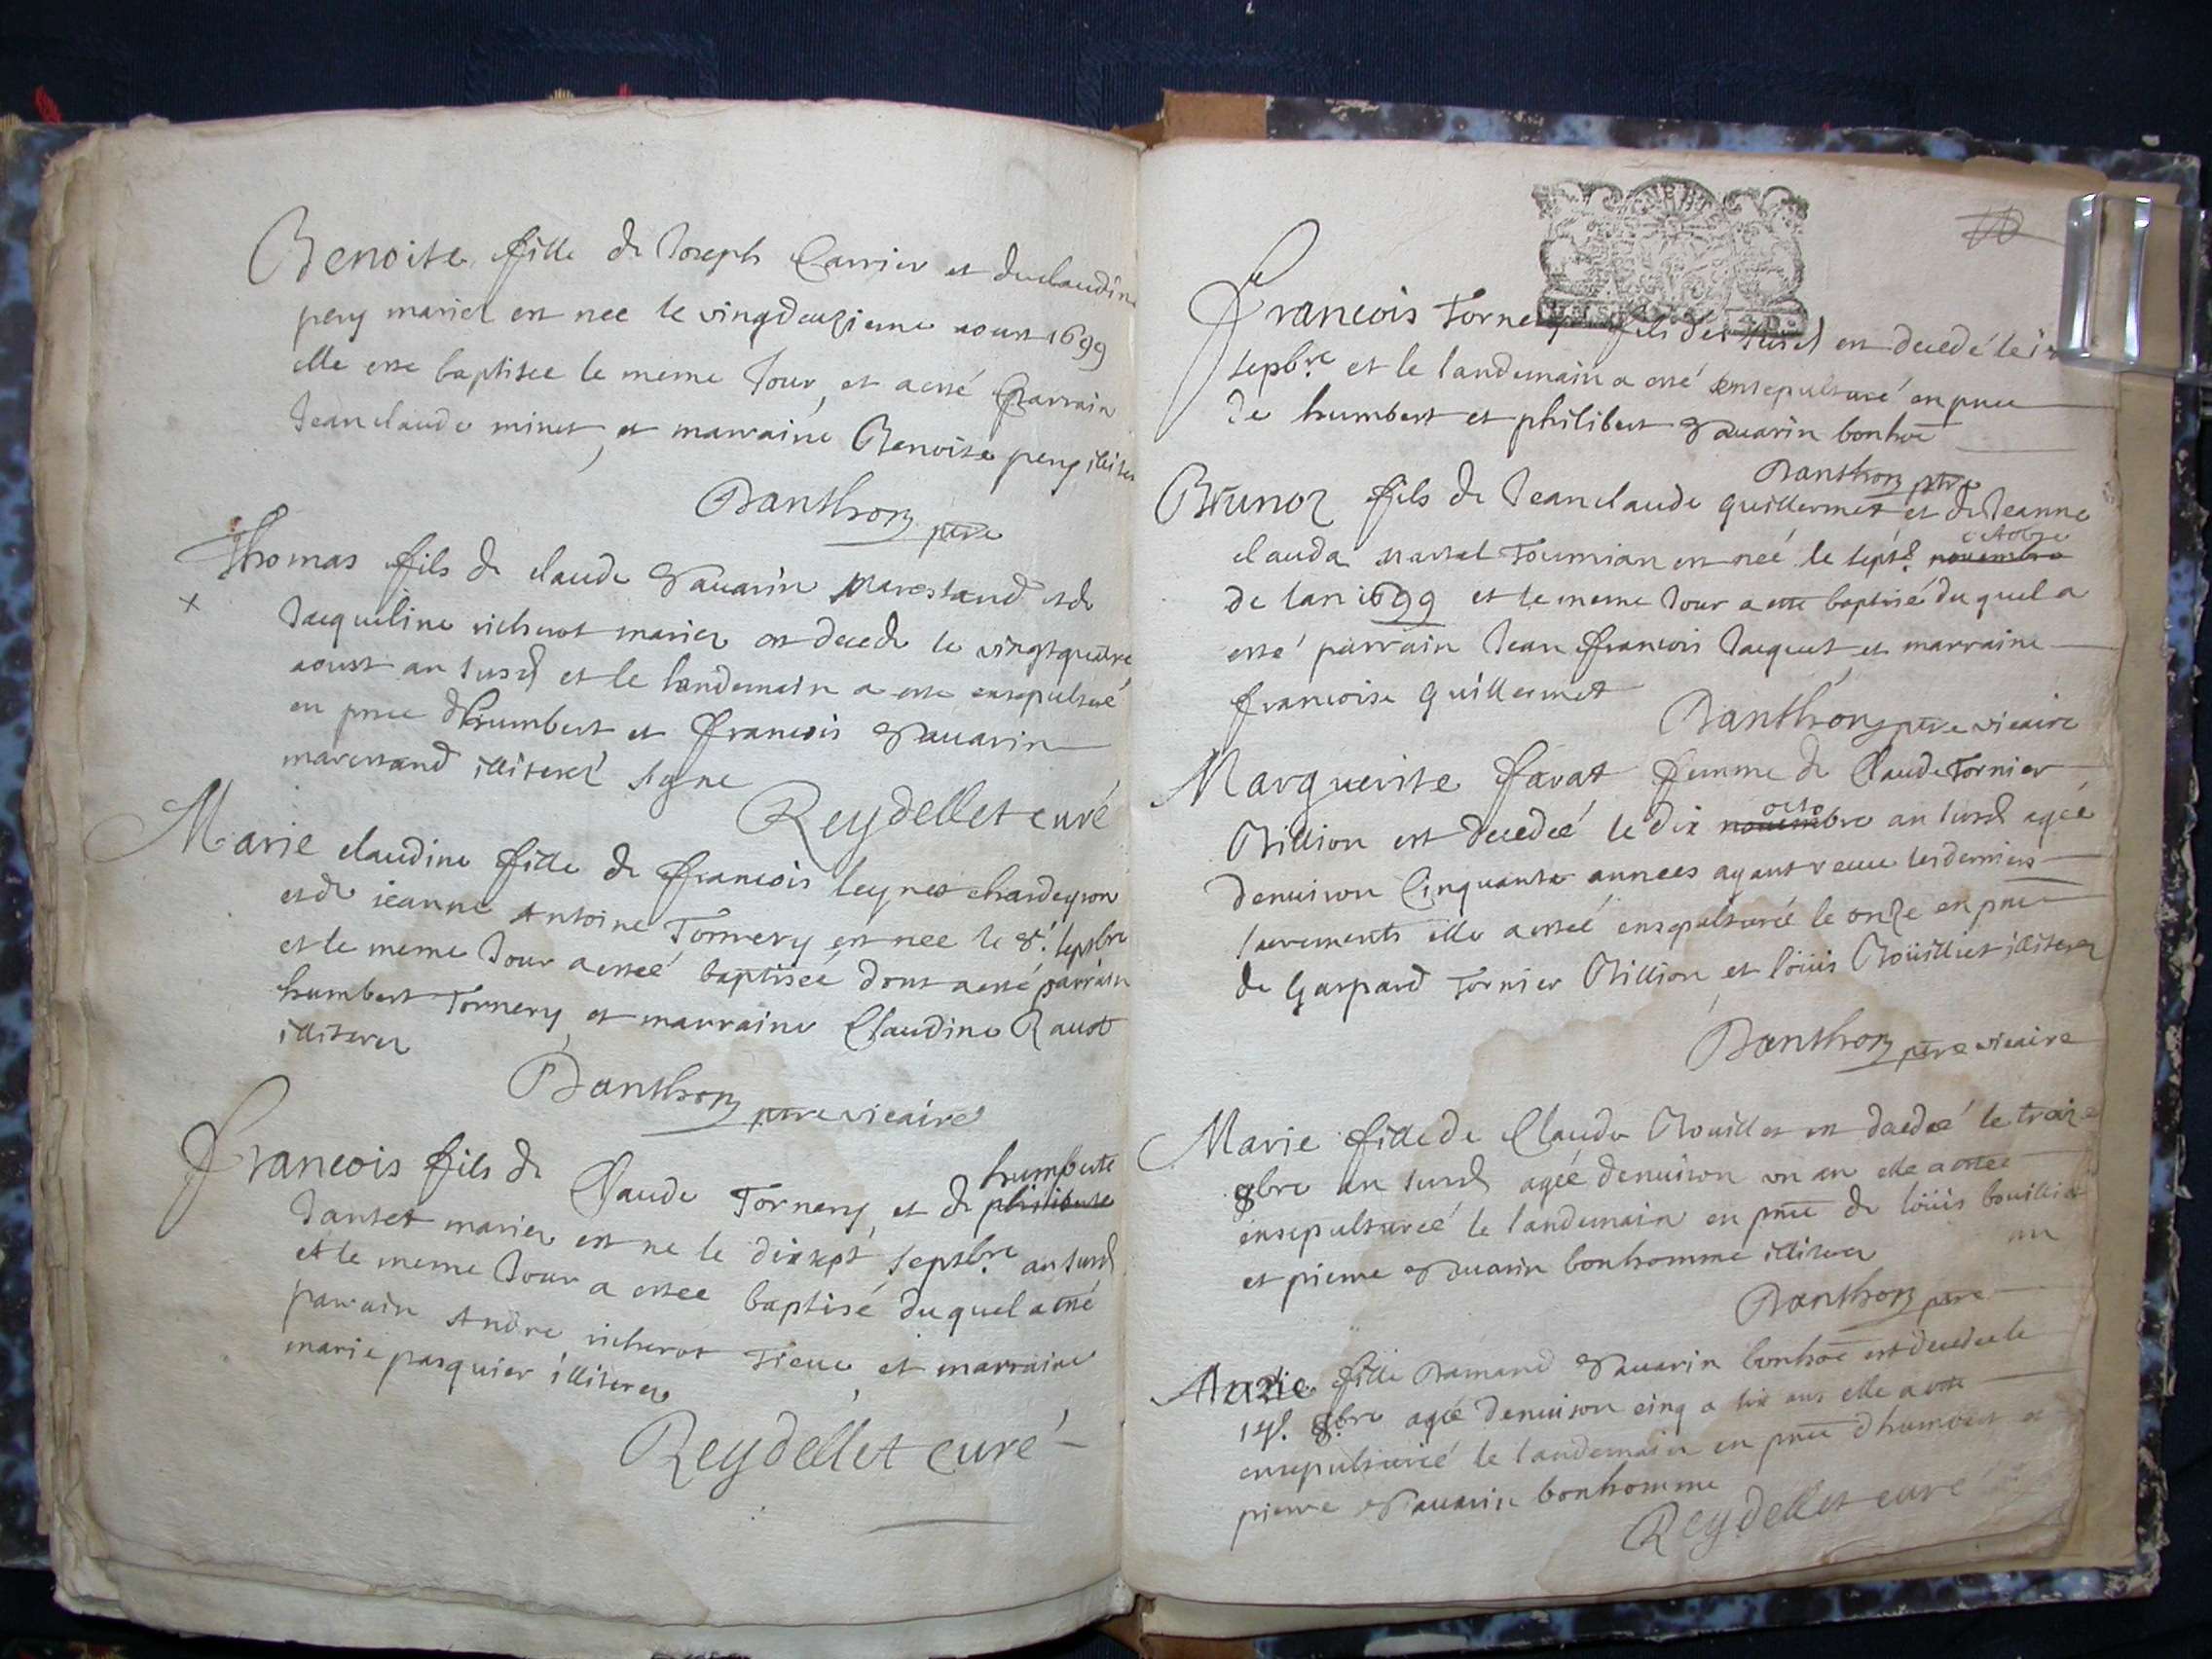 Benoite fille de Joseph Carrier et de claudine
peny mariez est nee le vingdeuzieme aoust 1699
elle este baptisee le meme Jour, et a esté parrain
Jean claude minet, et marraine Benoite peny illiter
Danthon pbre
Thomas fils de claude Savarin marchand et de
Jacqueline richerot mariez est decede le vingtquatre
aoust an susd et le landemain a este ensepulturé
en pnce d'humbert et francois Savarin
marchand illiterez signe
Reydellet curé
Marie claudine fille de francois leynet chardeyron
et de jeanne Antoine Tornery est nee le 8e. septbre
et le meme Jour a esteé baptiseé dont a esté parrain
humbert Tornery, et marraine Claudine Ravot
illiterez
Danthon pbre vicaire
francois fils de Claude Tornery, et de philiberte humberte
Dantet mariez est ne le dixsept septbre an susd
et le meme Jour a estee baptisé duquel a esté
parrain Andre richerot Tieue, et marraine
marie pasquier illiterez
Reydellet curé
francois Tornery fils des susd est decedé le
septbre et le landemain a esté ensepulturé en pnce
de humbert et philibert Savarin bonhoe
Danthon pbre
Brunoz fils de Jean claude guillermet et de Jeanne
clauda martel Tournian est neé le sept. novembre octobre
de lan 1699 et le meme Jour a este baptisé duquel a
esté parrain Jean francois Jacquet et marraine
francoise guillermet
Danthon pbre vicaire
Marguerite favat femme de Claude Tornier
Billion est decedeé le dix novembre octo an susd ageé
denuiron Cinquante annees ayant receu les derniers
sacrements elle a esteé ensepultureé le onze en pnce
de Gaspard Tornier Billion et loüis Boüilliet illiterez
Danthon pbre vicaire
Marie fille de Claude Bouillet est decedeé le treize
8bre an susd ageé denuiron un an elle a estee
ensepultureé le landemain en pnce de loüis bouilliet
et pierre Savarin bonhomme illiterez
Danthon pbre
Marie fille Damand Savarin bonhoe est decedee le
14. 8bre ageé denuiron cinq a six ans elle a este
ensepultureé le landemain en pnce d'humbert et
pierre Savarin bonhomme
Reydellet curé